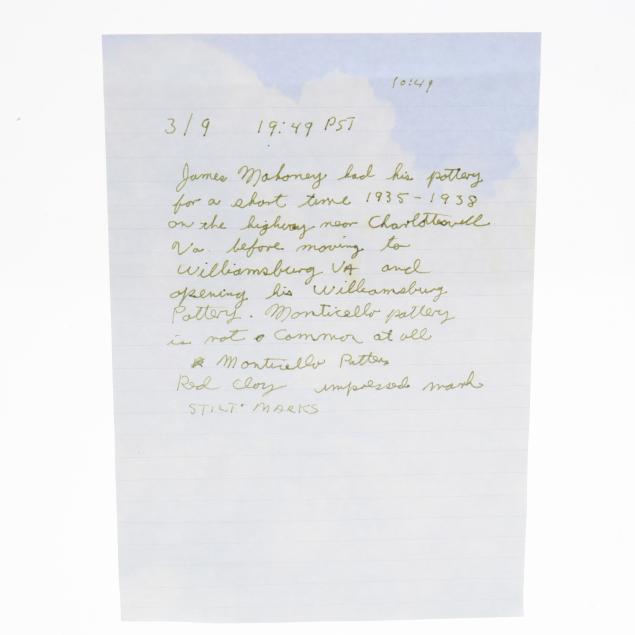 10:49
3/9 19:49 PST
James Mahoney had his pottery
for a short time 1935-1938
on the highway near Charlottesvell
Va. before moving to
Williamsburg VA and
opening his Williamsburg
Pottery. Monticello pottery
is not a common at all
Monticello Potters
Red Clay impressed mark
STILT MARKS